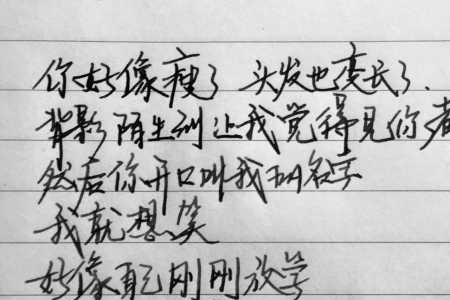 你好像瘦了 头发也变长了.
背影陌生到让我觉得见你者
然后你开口叫我的名字
我就想笑
好像自己刚刚放学